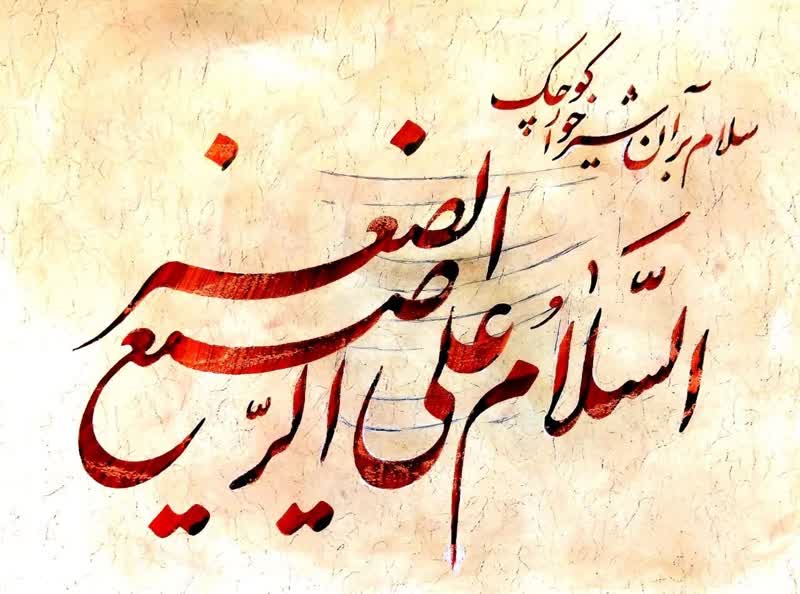 سلام بر آن شیرخوار کوچک
السَّلامُ علی الرَّضیع الصغیر